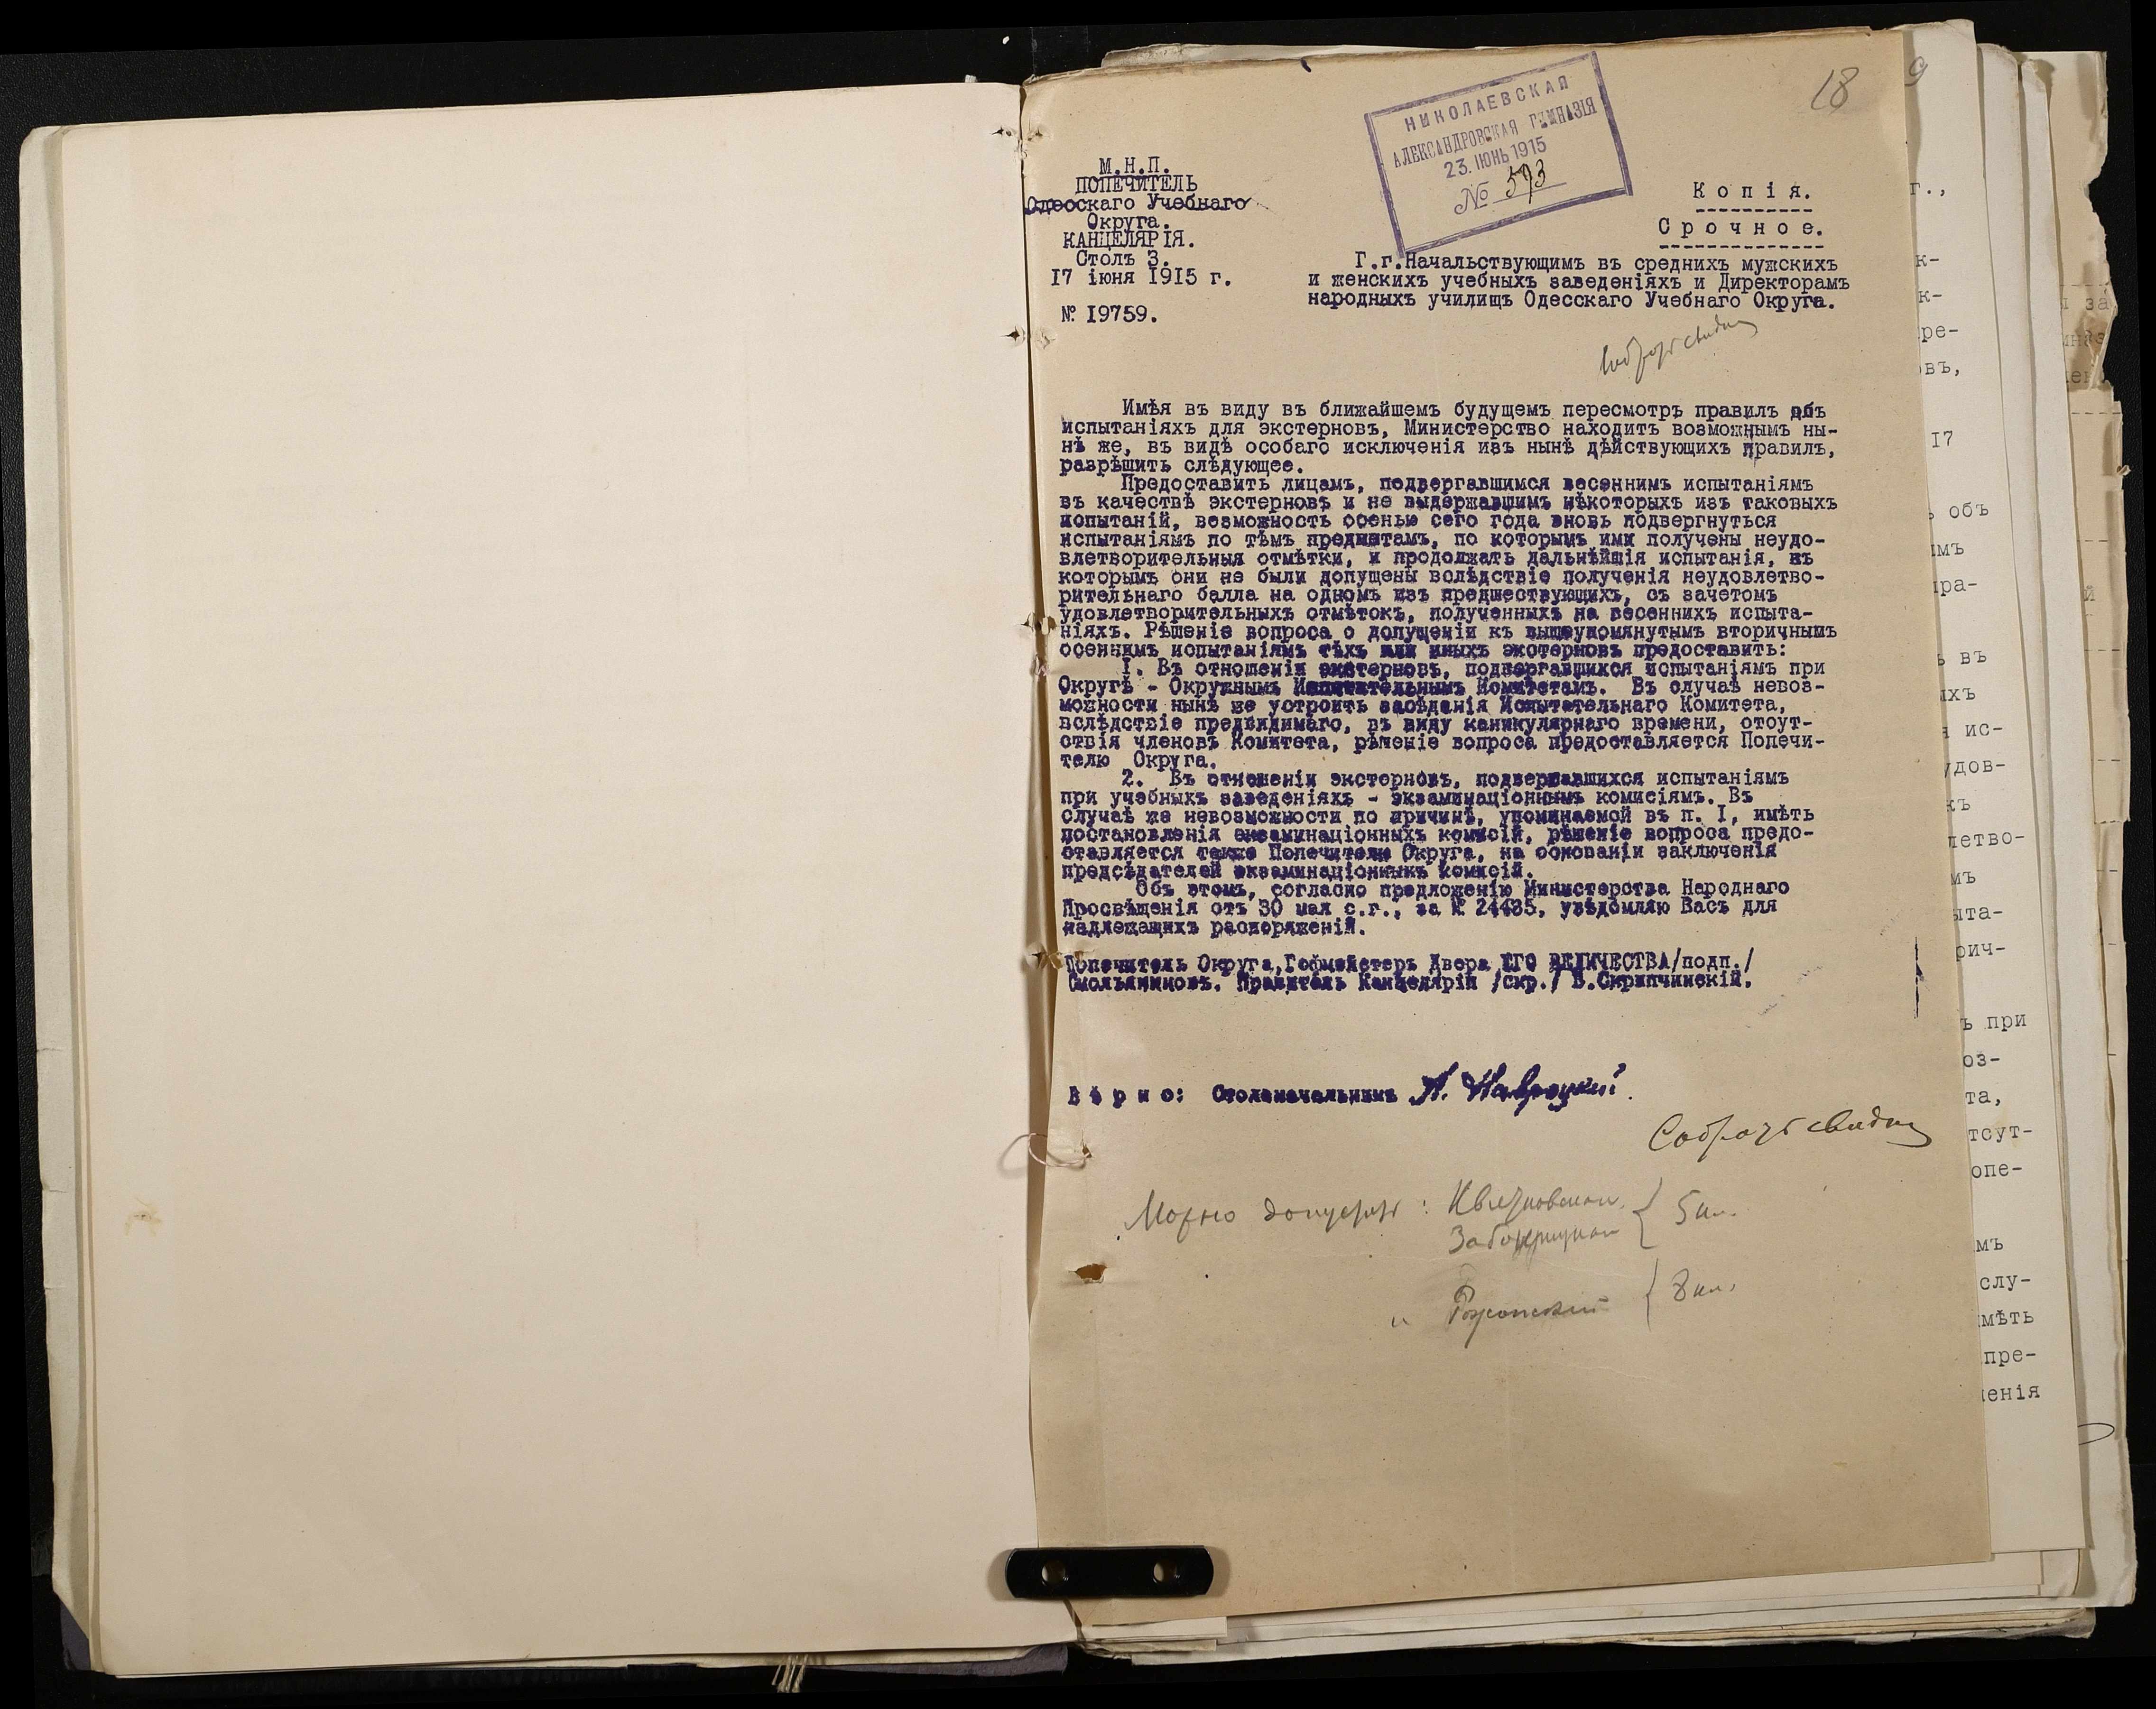 18
НИКОЛАЕВСКАЯ
АЛЕКСАНДРОВСКАЯ ГИМНАЗІЯ
23. ІЮНЬ 1915
№ 573
М.Н.П.
ПОПЕЧИТЕЛЬ
Одесскаго Учебнаго
Округа.
КАНЦЕЛЯРІЯ.
Столъ 3.
17 іюня 1915 г.
№ 19759.
Копія.
Срочное.
Г.г.Начальствующимъ въ среднихъ мужскихъ
и женскихъ учебныхъ заведеніяхъ и Директорамъ
народныхъ училищъ Одесскаго Учебнаго Округа.
Имѣя въ виду въ ближайшемъ будущемъ пересмотръ правилъ объ
испытаніяхъ для экстерновъ, Министерство находитъ возможнымъ ны-
нѣ же, въ видѣ особаго исключенія изъ нынѣ дѣйствующихъ правилъ,
разрѣшить слѣдующее.
Предоставить лицамъ, подвергавшимся весеннимъ испытаніямъ
въ качествѣ экстерновъ и не выдержавшимъ нѣкоторыхъ изъ таковыхъ
испытаній, возможность осенью сего года вновь подвергнуться
испытаніямъ по тѣмъ предметамъ, по которымъ ими получены неудо-
влетворительныя отмѣтки, и продолжать дальнѣйшія испытанія, къ
которымъ они не были допущены вслѣдствіе полученія неудовлетво-
рительнаго балла на одномъ изъ предшествующихъ, съ зачетомъ
удовлетворительныхъ отмѣтокъ, полученныхъ на весеннихъ испыта-
ніяхъ. Рѣшеніе вопроса о допущеніи къ вышеупомянутымъ вторичнымъ
осеннимъ испытаніямъ тѣхъ или иныхъ экстерновъ предоставить:
I. Въ отношеніи экстерновъ, подвергавшихся испытаніямъ при
Округѣ - Окружнымъ Испытательнымъ Комитетамъ. Въ случаѣ невоз-
можности нынѣ же устроить засѣданія Испытательнаго Комитета,
вслѣдствіе предвидимаго, въ виду каникулярнаго времени, отсут-
ствія членовъ Комитета, рѣшеніе вопроса предоставляется Попечи-
телю Округа.
2. Въ отношеніи экстерновъ, подвергавшихся испытаніямъ
при учебныхъ заведеніяхъ - экзаминаціоннымъ комисіямъ. Въ
случаѣ же невозможности по причинѣ, упоминаемой въ п. I, имѣть
постановленія экзаминаціонныхъ комисій, рѣшеніе вопроса предо-
ставляется также Попечителю Округа, на основаніи заключенія
предсѣдателей экзаминаціонныхъ комисій.
Объ этомъ, согласно предложенію Министерства Народнаго
Просвѣщенія отъ 30 мая с.г., за № 24435, увѣдомляю Васъ для
надлежащихъ распоряженій.
Попечитель Округа,Гофмейстеръ Двора ЕГО ВЕЛИЧЕСТВА/подп./
Смольяниновъ. Правитель Канцеляріи /скр./ В.Скрипчинскій.
Вѣрно: Столоначальникъ А. Навроцкій.
Можно допустить :
5 кл.
и
8 кл.